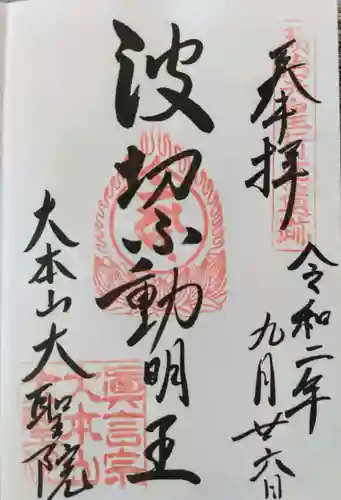 奉拝
令和二年
九月廿六日
波切不動明王
大本山大聖院